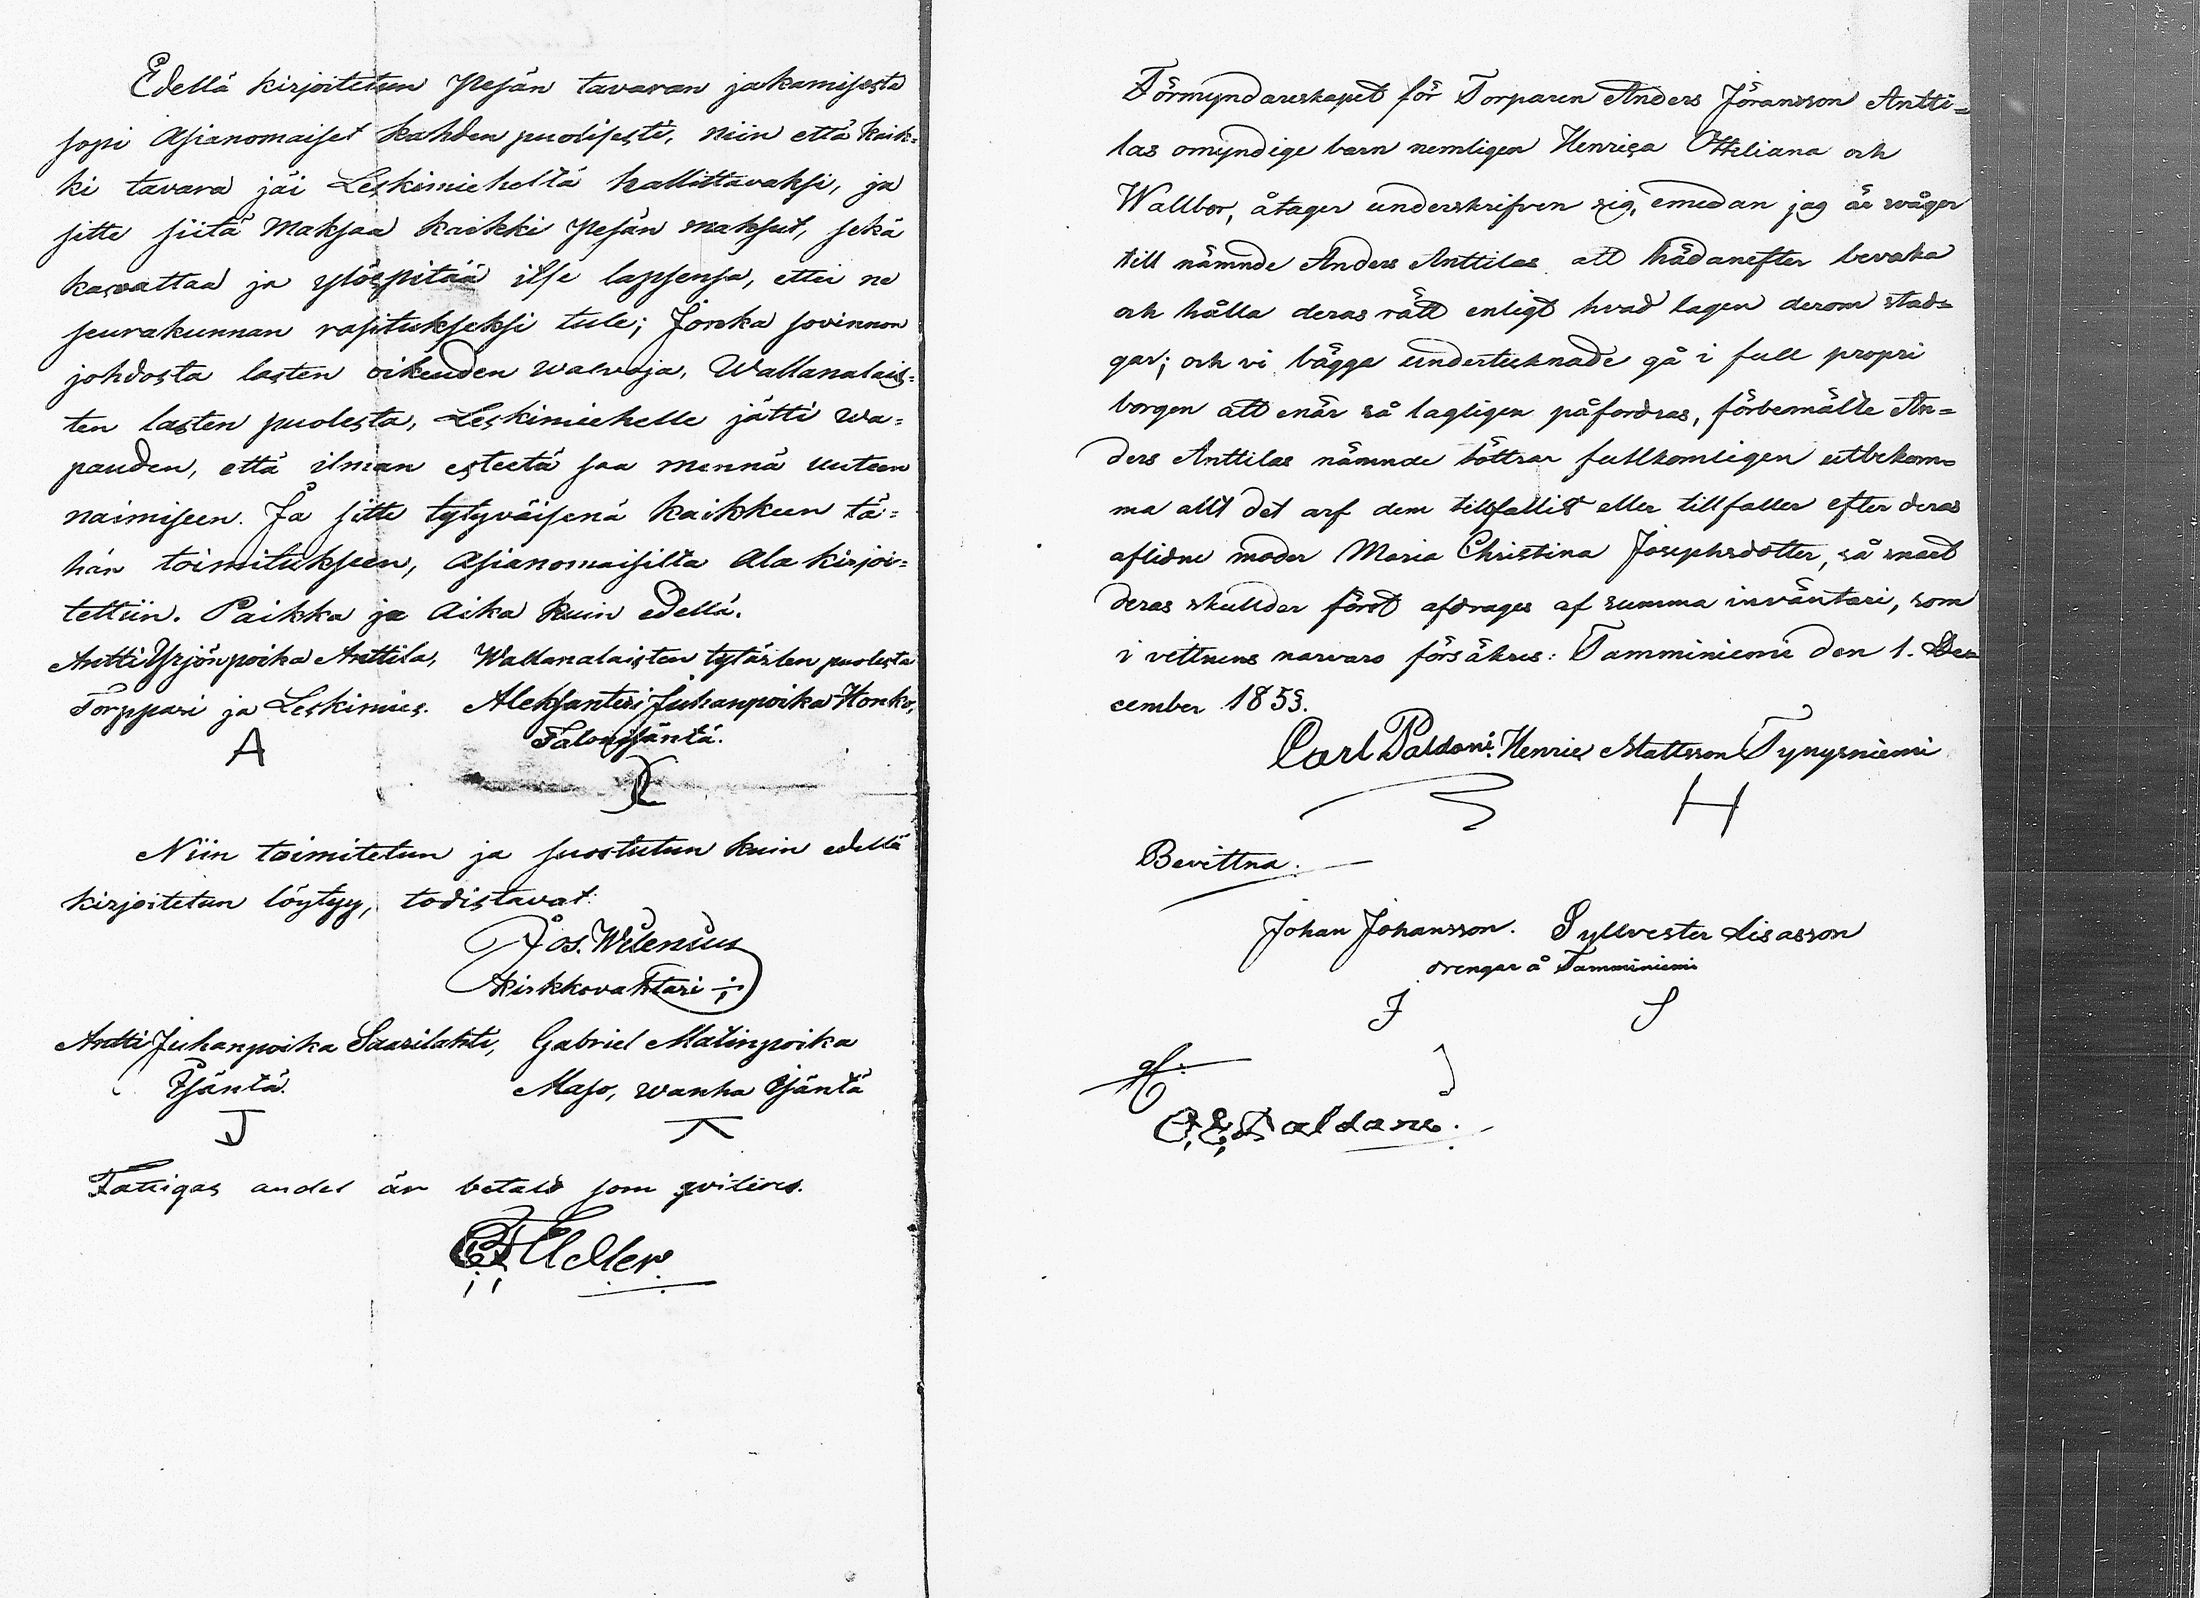 Edellä kirjoitetun Pesän tavaran jakamisesta
sopi Asianomaiset kahden puolisesti, niin että kaik=
ki tavara jäi Leskimieheltä hallittavaksi, ja
sitte siitä Maksaa kaikki Pesän maksut, sekä
kasvattaa ja ylöspitää itse lapsensa, ettei ne
seurakunnan rasitukseksi tule; Jonka sovinnon
johdosta lasten oikeuden valvoja, Wallanalais=
ten lasten puolesta, Leskimiehelle jätti wa=
pauden, että ilman estettä saa mennä uuteen
naimiseen. Ja sitte tytyväisenä kaikkeen tä=
hän toimitukseen, Asianomaisilta Ala kirjoi=
tettiin. Paikka ja Aika kuin edellä.
Antti Yrjönpoika Anttila, Wallanalaisten tytärten puolesta
Torppari ja Leskimies. Aleksanteri Juhanpoika Honko,
A Talonisäntä.
Niin toimitetun ja suostutun kuin edellä
kirjoitetun löytyy, todistavat:
Jos. Wilenius
Kirkkovahtari
Antti Juhanpoika Saarilahti, Gabriel Matinpoika
Isäntä. Maso, wanha Isäntä
Fattigas andel är betald som qviteres.
Adler
Förmyndareskapet för Torparen Anders Jöransson Antti=
las omyndige barn nemligen Henrica Otteliana och
Wallbor, åtager underskrifven sig, emedan jag är swåger
till nämnde Anders Anttilas att hädanefter bevaka
och hålla deras rätt enligt hvad lagen derom stad=
gar; och vi bägge undertecknade gå i full propri
borgen att enär så lagligen påfordras, förbemälte An=
ders Anttilas nämnde döttrar fullkomligen utbekom=
ma allt det arf dem tillfallit eller tillfaller efter deras
aflidne moder Maria Christina Josephsdotter, så snart
deras skullder först afdrages af summa inväntari, som
i vittnens narvaro försäkres: Tamminiemi den 1. De=
cember 1853.
Carl Paldani. Henric Mattsson Tynysniemi
H
Bevittna:
Johan Johansson. Syllvester Lisasson
drengar å Tamminiemi
J S
Paldani.